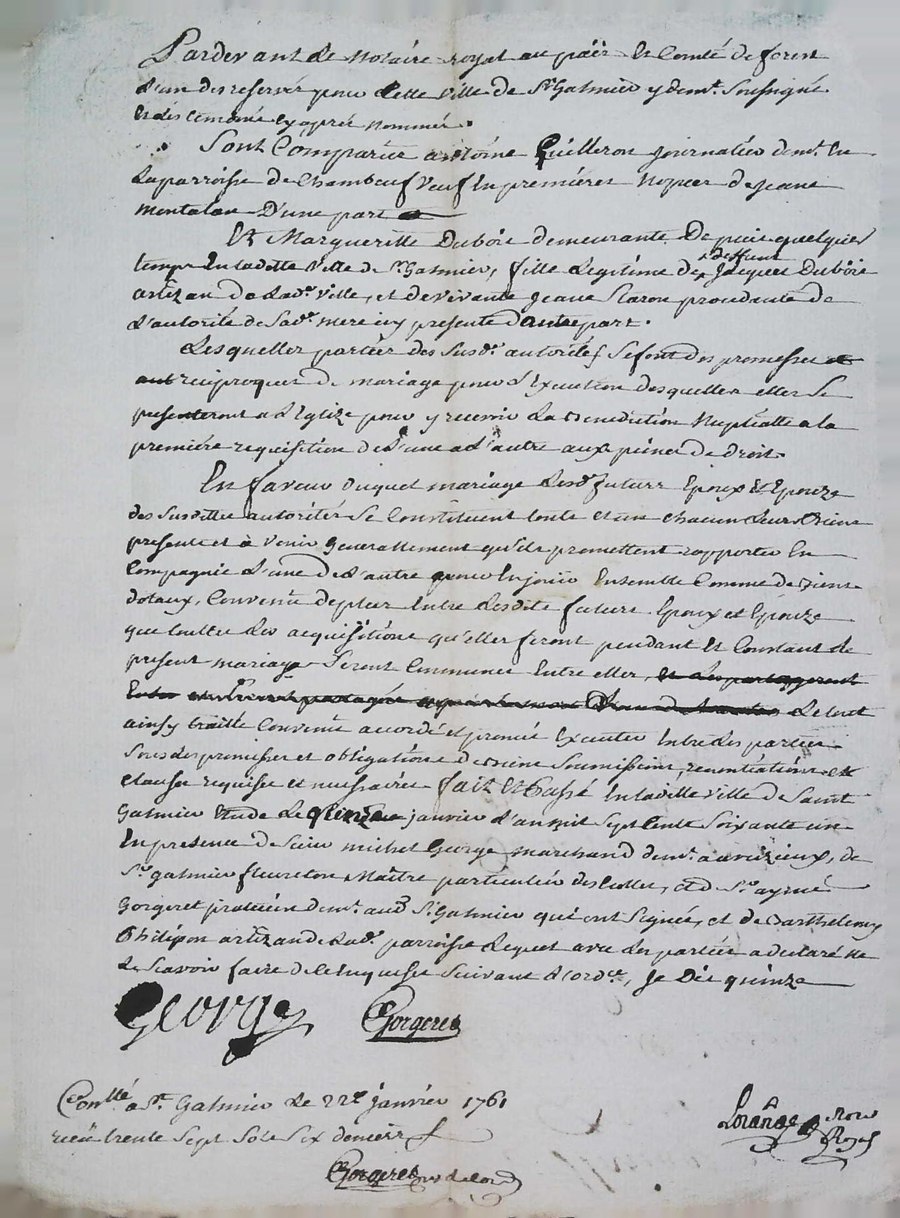 Pardevant Le Notaire royal au païs et Comté de forest
L'un des reservés pour cette ville de St Galmier y demt. Soussigné
et des temoins cy aprés nommés.
Sont Comparus antoine Guilleron journalier demt. en
La parroisse de Chambeuf veuf en premieres Nopces de jeane
D'une part
Et Margueritte Dubois demeurante Depuis quelques
temps en ladette ville de St. Galmier, fille Legitime de deffunt Jacques Dubois
artizan de Lade. ville, et de vivante jeane procedante de
L'autorité de Sade. mere icy presente d'autre part.
Lesquelles parties des Susde. autorités Se font des promesses
reciproques de mariage pour L'Execution desquelles elles Se
presenteront a L'Eglize pour y recevoir La benediction Nuptialle a la
premiere requisition de L'une a L'autre aux peines de droit.
En faveur duquel mariage Lesd. futurs Epoux et Epouze
des Susdittes autorités Se Constituent touts et un chacun leurs biens
presents et à venir generallement qu'ils promettent rapporter en
Compagnie L'un de L'autre pour en jouir Ensemble Comme de biens
dotaux, Convenu de plus entre Lesdits futurs Epoux et Epouze
que touttes Les acquisitions qu'elles feront pendant et Constant Le
present mariage Seront Communes Entre elles,
Le tout
ainsy traitté Convenu accordé et promis Executer entre Les parties
Sous des promesses et obligations de biens Soumissions, renontiations et
clauses requises et necessaires fait et Passé en laditte ville de Saint
Galmier Etude Le quinze janvier L'an mil Sept Cents Soixante un
En presence de Sieur michel George marchand demt. a de
St. galmier fleureton Maître particulier des et de Sr. aymé
Gorgeret praticien demt. aud St. Galmier qui ont Signés, et de Barthelemy
Philipon artizan de Lade. parroisse Lequel avec Les parties a declaré ne
Le Scavoir faire de ce enquis Suivant L'ordce., Je Dis quinze
George Gorgeret
Conllé a St. Galmier Le 22e janvier 1761
receu trente Sept Sols Six deniers
Gorgeret
Lorange Nore
Royal